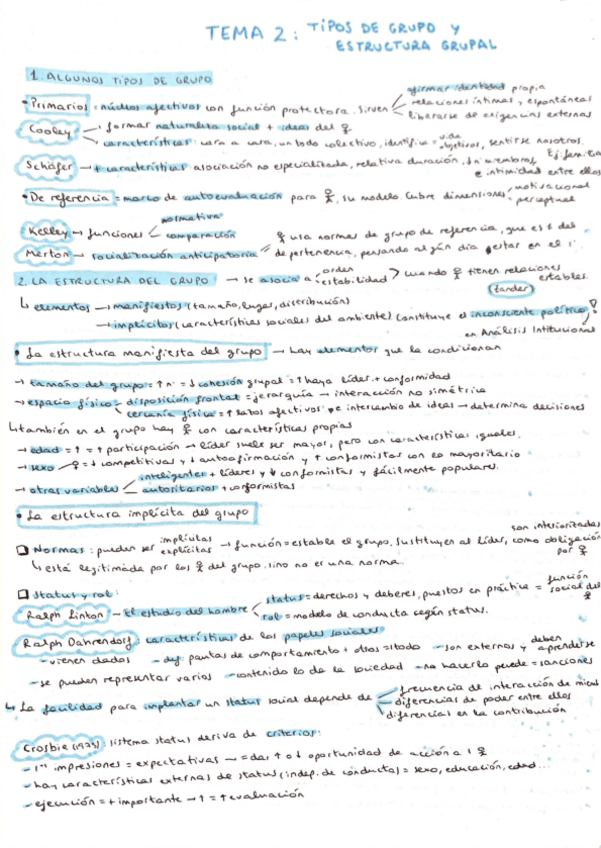 TEMA 2: TIPOS DE GRUPO Y
ESTRUCTURA GRUPAL
1. ALGUNOS TIPOS DE GRUPO
• Primarios = núcleos afectivos con función protectora. Sirven
afirmar identidad propia
relaciones íntimas y espontáneas
liberarse de exigencias externas
Cooley
formar naturaleza social + ideas del
características cara a cara, un todo colectivo, identifica = vida objetivos, sentirse nosotros.
Ej. familia
Schäfer → + características asociación no especializada, relativa duración, ↓n miembros
e intimidad entre ellos
• De referencia = marco de autoevaluación para ♀, su modelo. Cubre dimensiones
motivacional
perceptual
Kelley → funciones
normativa
comparación
Merton → socialización anticipatoria =
♀ usa normas de grupo de referencia, que es ≠ del
de pertenencia, pensando algún día estar en el 1º.
2. LA ESTRUCTURA DEL GRUPO → se asocia a
orden
estabilidad
> cuando ♀ tienen relaciones
estables.
(Lander)
↳ elementos → manifiestos (tamaño, lugar, distribución)
→ implícitos (características sociales del ambiente) Constituye el inconsciente político
en Análisis Intitucional
• La estructura manifiesta del grupo → hay elementos que la condicionan
→ tamaño del grupo = ↑ nº = ↓ cohesión grupal = ↑ haya líder + conformidad
→ espacio físico
disposición frontal = jerarquía → interacción no simétrica
cercanía física = ↑ lazos afectivos e intercambio de ideas → determina decisiones
↳ también en el grupo hay ♀ con características propias
→ edad = ↑ = ↑ participación → líder suele ser mayor, pero con características iguales.
→ sexo ♀ = ↓ competitivas y ↓ autoafirmación y ↑ conformistas con lo mayoritario
→ otras variables
inteligentes + líderes y ↓ conformistas y fácilmente populares.
autoritarios + conformistas
• La estructura implícita del grupo
❑ Normas: pueden ser
implícitas
explícitas
→ función = estable el grupo. Sustituyen al líder, como obligación
son interiorizadas
por ♀
↳ está legitimada por los ♀ del grupo. sino no es una norma.
❑ Status y rol:
Ralph Linton – El estudio del hombre
status = derechos y deberes, puestos en práctica = función social del
rol = modelo de conducta según status.
Ralph Dahrendorf: características de los papeles sociales
– vienen dados – def: pautas de comportamiento + otros = todo – son externos y deben aprenderse
– se pueden representar varios – contenido lo da la sociedad – no hacerlo puede = sanciones
↳ La facilidad para implantar un status social depende de
frecuencia de interacción de
diferencias de poder entre ellos
diferencias en la contribución
Crosbie: sistema status deriva de criterios:
– 1ªs impresiones = expectativas → = dar ↑ o ↓ oportunidad de acción a 1 ♀
– hay características externas de status (indep. de conducta) = sexo, educación, edad...
– ejecución = + importante → ↑ = ↑ evaluación